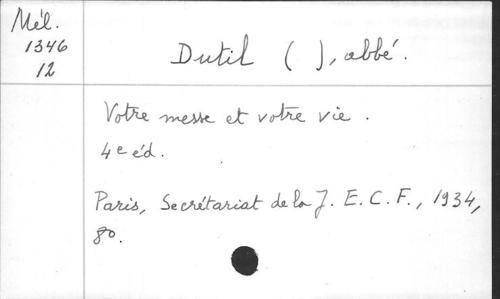 Mél.
1346
12
Dutil ( ), abbé.
Votre messe et votre vie.
4e éd.
Paris, Secrétariat de la J. E. C. F., 1934,
8o.